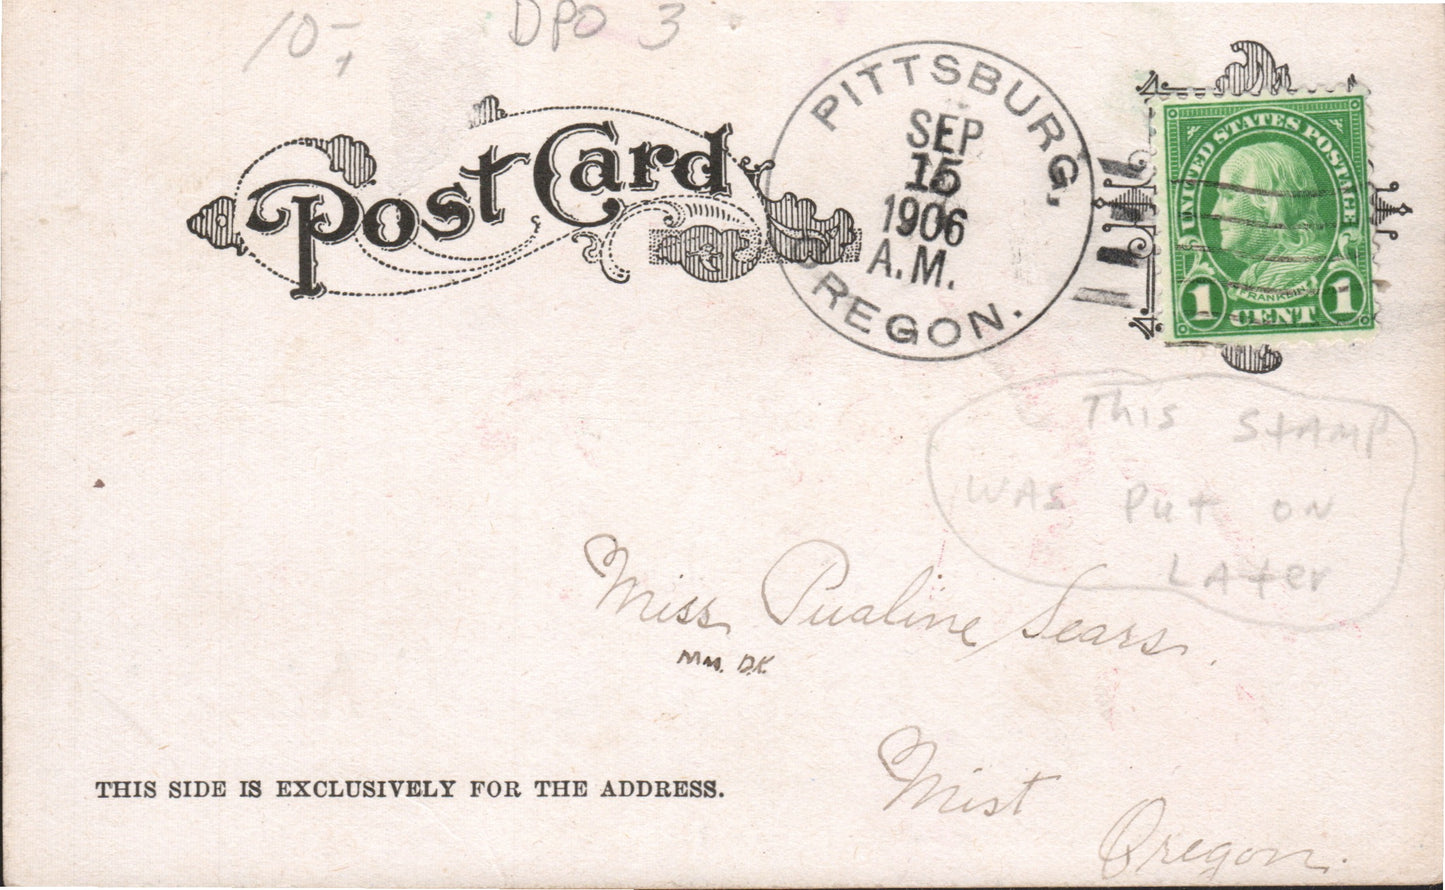 10-
DPO 3
Post Card
PITTSBURG,
SEP
15
1906
A.M.
OREGON.
UNITED STATES POSTAGE
FRANKLIN
1 CENT 1
This STAMP
WAS PUT ON
LATER
Miss Pualine Sears.
Mist
Oregon.
THIS SIDE IS EXCLUSIVELY FOR THE ADDRESS.